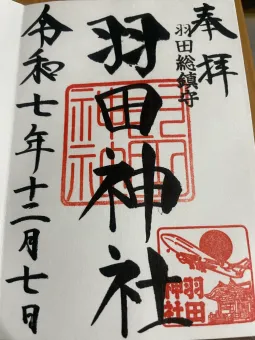 奉拝
羽田総鎮守
羽田神社
令和七年十二月七日
羽田
神社